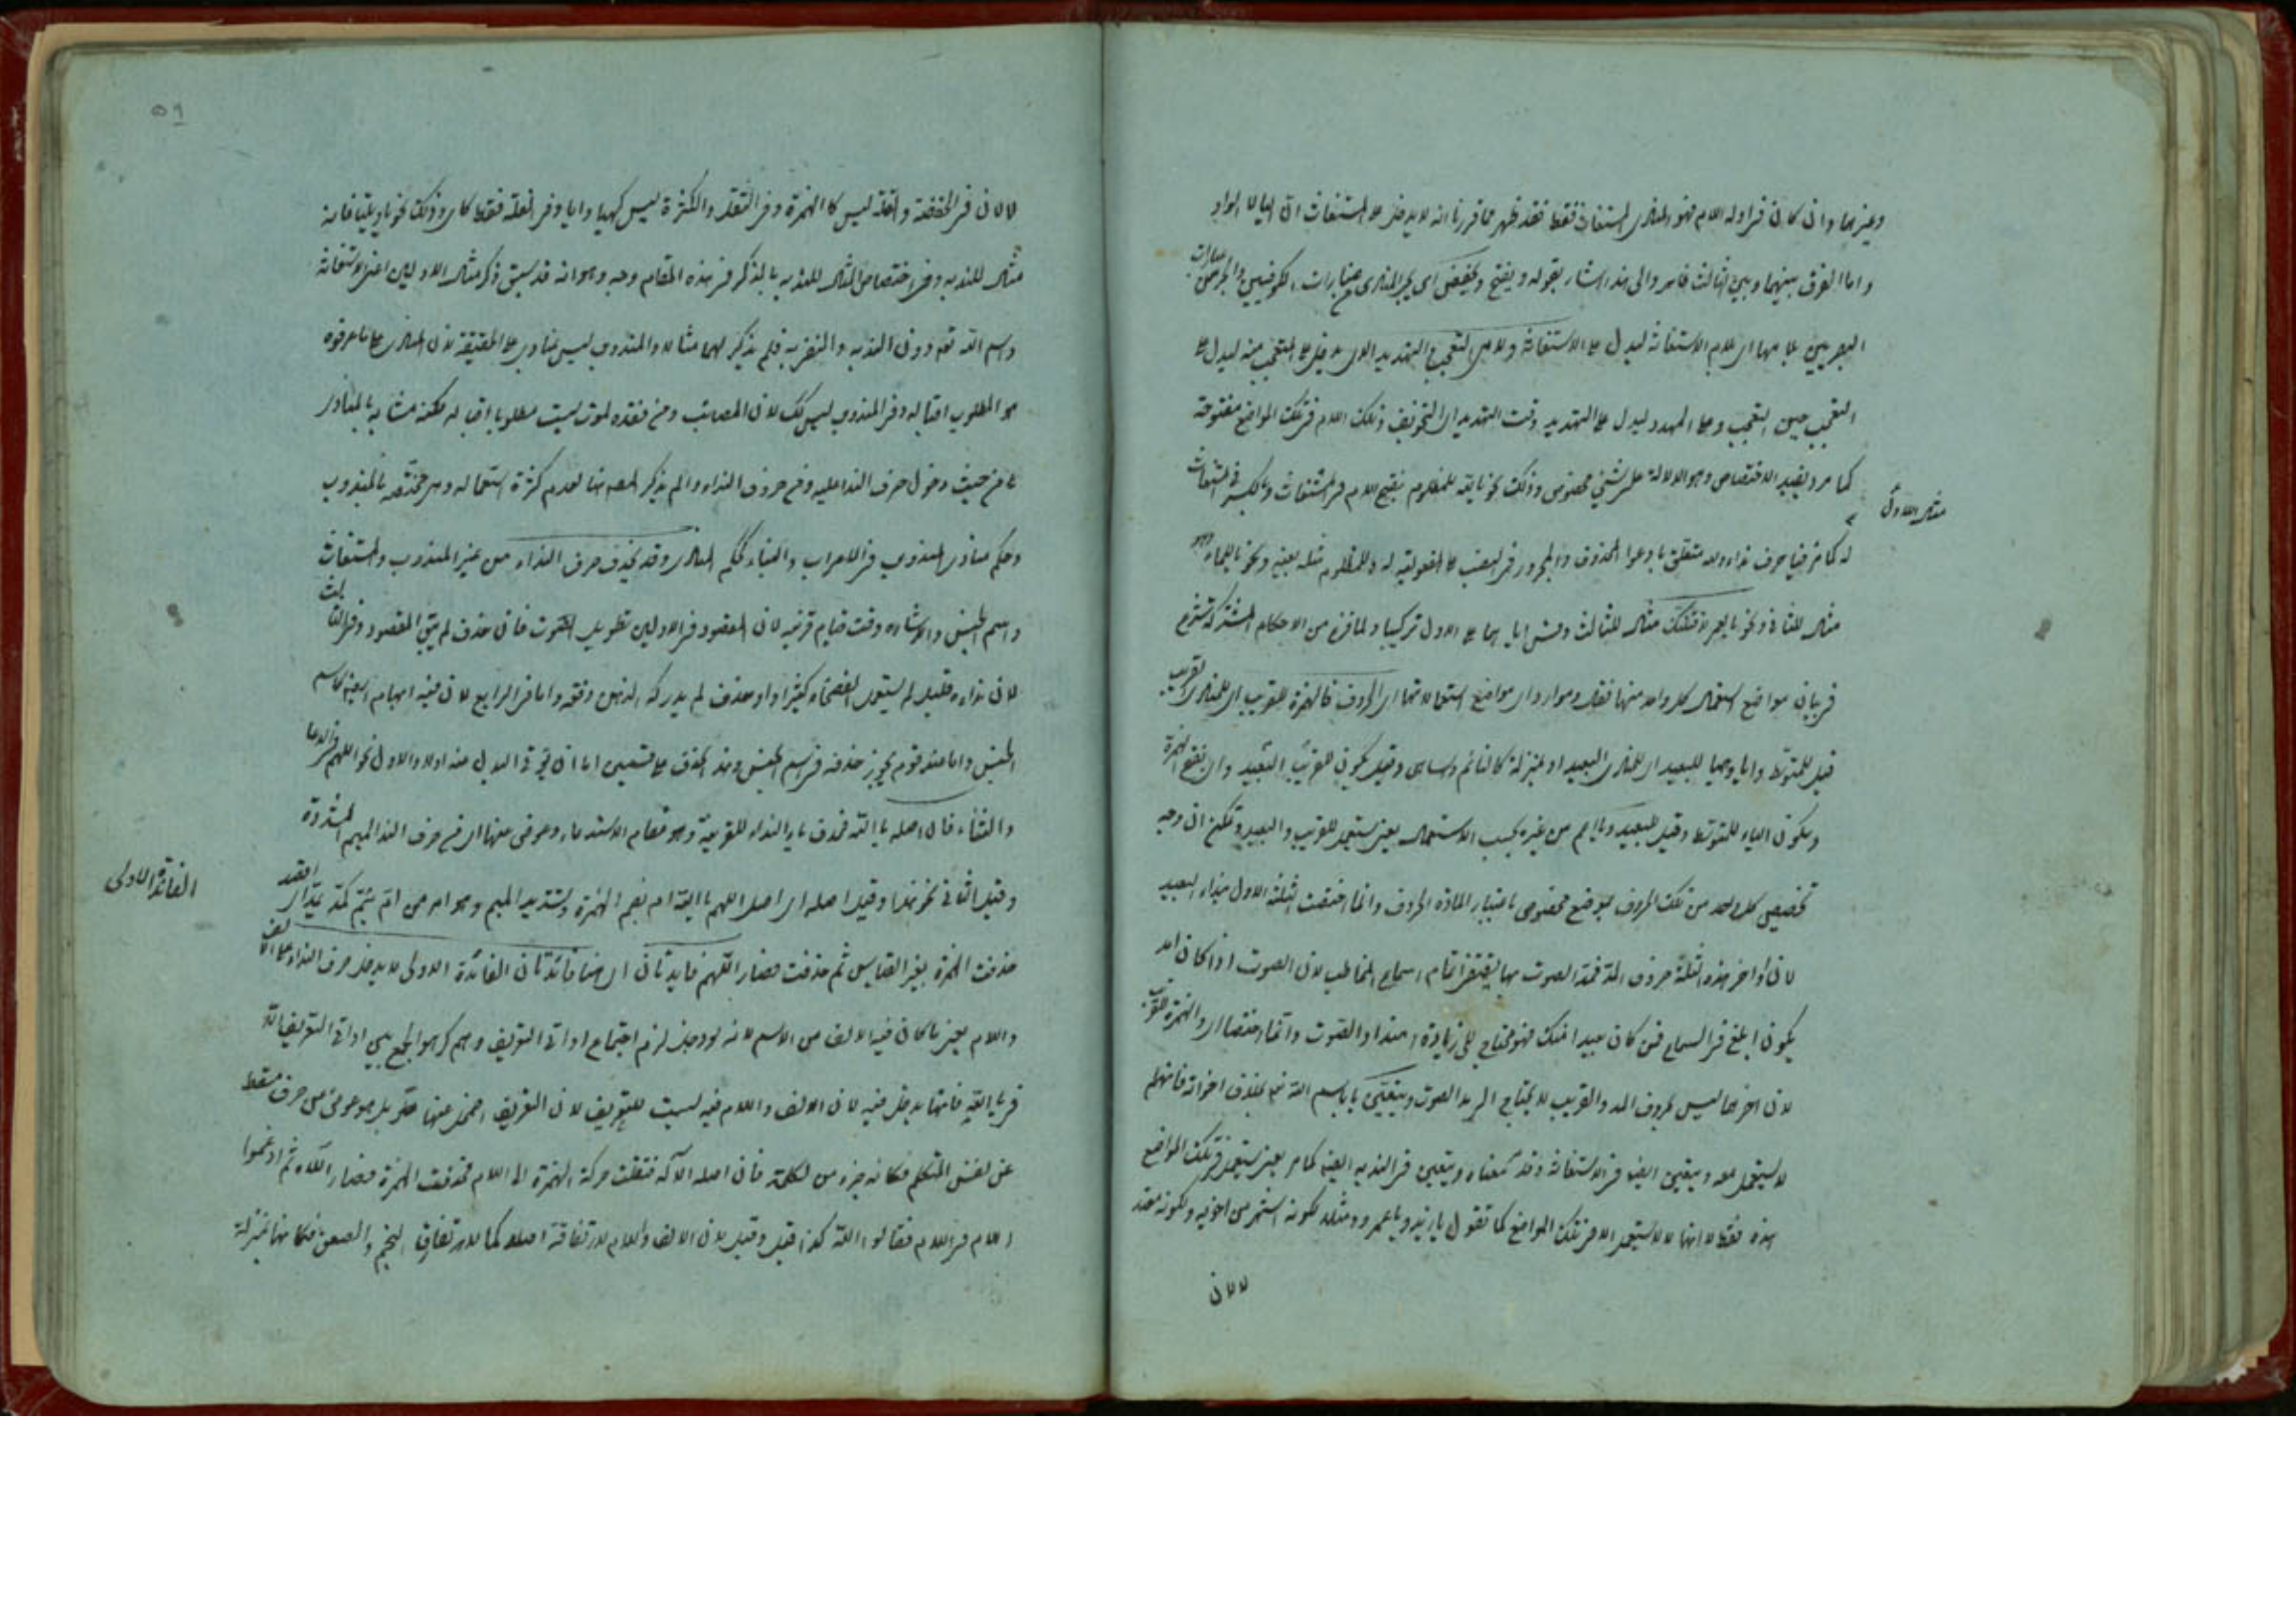 وغيرهما وان كان في اوله اللام فهو المنادى المستغاث فقط فقد ظهر مما قررنا انه لا يدخل على المستغاث الا الياء
واما الفرق بينهما وبين الثالث فامر والى هذا اشار بقوله ويفتح ويخفض اى يجر المنادى عبارات الكوفيين والجر من عبارات
البصريين بلامها اى لام الاستغاثة ليدل على الاستغاثة ولام التعجب والتهديد الا يدخل على المتعجب منه ليدل على
التعجب حين التعجب وعلى المهدد ليدل على التهديد وقت التهديد اى التخويف وتلك اللام في تلك المواضع مفتوحة
كما مر ويفيد الاختصاص وهو الدلالة على شيء مخصوص وذلك نحو يا لله للمظلوم بفتح اللام في المستغاث وبالكسر في المستغاث
مثال الاول
له كما مر فيا حرف نداء ولله متعلق بادعوا المحذوف والمجرور في النصب على المفعولية له وللمظلوم مثله بعينه ونحو يا للماء وهو
مثال للثاني ونحو يا لعمرو لاقتلنك مثال للثالث وقس اياهما على الاول تركيبا ولما فرغ من الاحكام المشتركة شرع
في بيان مواضع استعمال كل واحد منها فقال وموارد اى مواضع استعمالاتها اى الحروف فالهمزة للقريب اى للمنادى القريب
قيل للمتوسط وايا وهيا للبعيد اى للمنادى البعيد او بمنزلة كالنائم والساهي وقيل يكون للقريب والبعيد واى بفتح الهمزة
وسكون الياء للمتوسط وقيل للبعيد ويا اعم من غيره بحسب الاستعمال يعنى يستعمل للقريب والبعيد ويمكن ان وجه
تخصيص كل واحد من تلك الحروف بموضع مخصوص باعتبار المادة الحروف وانما اختصت الثلثة الاول بنداء البعيد
لان اواخر هذه الثلثة حروف المد فمد الصوت بها يقتضى تمام اسماع المخاطب لان الصوت اذا كان امد
يكون ابلغ في السماع فمن كان بعيدا منك فهو محتاج الى زيادة امتداد الصوت وانما اختصا اى والهمزة للقريب
لان اخرهما ليس بحروف المد والقريب لا يحتاج الى مد الصوت ويتعين يا باسم الله تعالى بخلاف اخواته فانها لم
لا يستعمل معه ويتعين ايضا في الاستغاثة وقد معناه ويتعين في الندبة ايضا كما مر يعنى يستعمل في تلك المواضع
هذه فقط لا انها لا يستعمل الا في تلك المواضع كما تقول يا زيد ويا عمرو ومثله لكونه اشهر من اخويه ولكونه معتد
لا لان
٥٦
لا لان في الخفة والقلة ليس كالهمزة وفي الثقل والكثرة ليس كهيا وايا وفي العلة فقط كاى وذلك نحو يا ويلتا فانه
مثال للندبة وفي اختصاص المثال للندبة بالذكر في هذه المقام وجه وهو انه قد سبق ذكر مثال الاولين اعنى الاستغاثة
واسم الله تعالى دون الندبة فلم يذكر لهما مثالا والمندوب ليس بمنادى على الحقيقة لان المنادى على ما عرفوه
هو المطلوب اقباله وفي المندوب ليس كك لان المصائب ومن فقده لموت ليست مطلوبا اقباله لكنه مشابه بالمنادى
من حيث دخول حرف النداء عليه وفي حروف النداء والم يذكر المصنف لعدم كثرة استعماله وهي مختصة بالمندوب
وحكم منادى المندوب في الاعراب والبناء كحكم المنادى وقد يحذف حرف النداء من غير المندوب والمستغاث
واسم الجنس والاشارة وقت قيام قرينة لان المقصود في الاولين تطويل الصوت فان حذف لم يبق المقصود وفي الثالث
لان نداءه قليل لم يستعمل الفصحاء كثيرا ولو حذف لم يدركه الذهن وقته واما في الرابع لان فيه ابهاما بعينه كاسم
الجنس واما عند قوم يجوز حذفه في اسم الجنس وهذا الحذف على قسمين اما ان يؤتى البدل منه اولا والاول نحو اللهم في الدعا
والثناء فان اصله يا الله فحذف ياء النداء للقرينة وهو مقام الاستدعاء وعوض منها اى من حرف النداء الميم المشددة
وقيل الثاني نحو هذا وقيل اصله اى اصل اللهم يا الله ام بضم الهمزة وتشديد الميم وهو امر من ام يئم كمد يمد اى اقصد
حذفت الهمزة بغير القياس ثم حذفت فصار اللهم فايدتان اى هنا فائدتان الفائدة الاولى لا يدخل حرف النداء على الالف
الفائدة الاولى
واللام يعنى ما كان فيه الالف من الاسم لانه لو دخل لزم اجتماع اداتى التعريف وهم كرهوا الجمع بين اداتى التعريف الا
في يا الله فانها يدخل فيه لان الالف واللام فيه ليست للتعريف لان التعريف اضمحل عنها بل هو عوض من حرف سقط
عن نفس المتكلم فكانه جزء من الكلمة فان اصله الاله فنقلت حركة الهمزة الى اللام فحذفت الهمزة فصار اللاه ثم ادغموا
اللام في اللام فقالوا الله كذا قيل وقيل لان الالف واللام لا تفارقه اصلا كما لا تفارق النجم والصعق فكانها بمنزلة